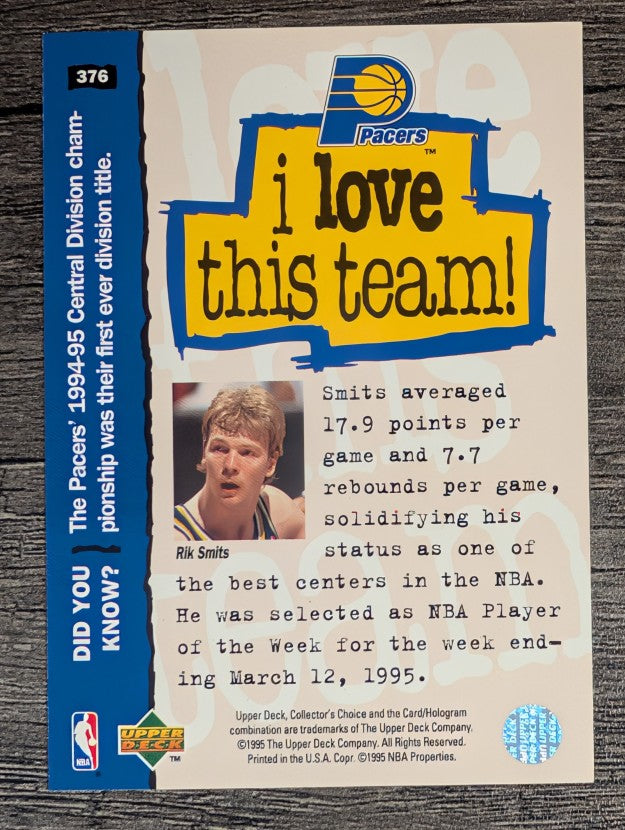 376
DID YOU KNOW?
The Pacers' 1994-95 Central Division cham-
pionship was their first ever division title.
Pacers
TM
i love
this team!
Smits averaged
17.9 points per
game and 7.7
rebounds per game,
solidifying his
status as one of
the best centers in the NBA.
He was selected as NBA Player
of the Week for the week end-
ing March 12, 1995.
Rik Smits
NBA
UPPER
DECK
TM
Upper Deck, Collector's Choice and the Card/Hologram
combination are trademarks of The Upper Deck Company.
©1995 The Upper Deck Company. All Rights Reserved.
Printed in the U.S.A. Copr. ©1995 NBA Properties.